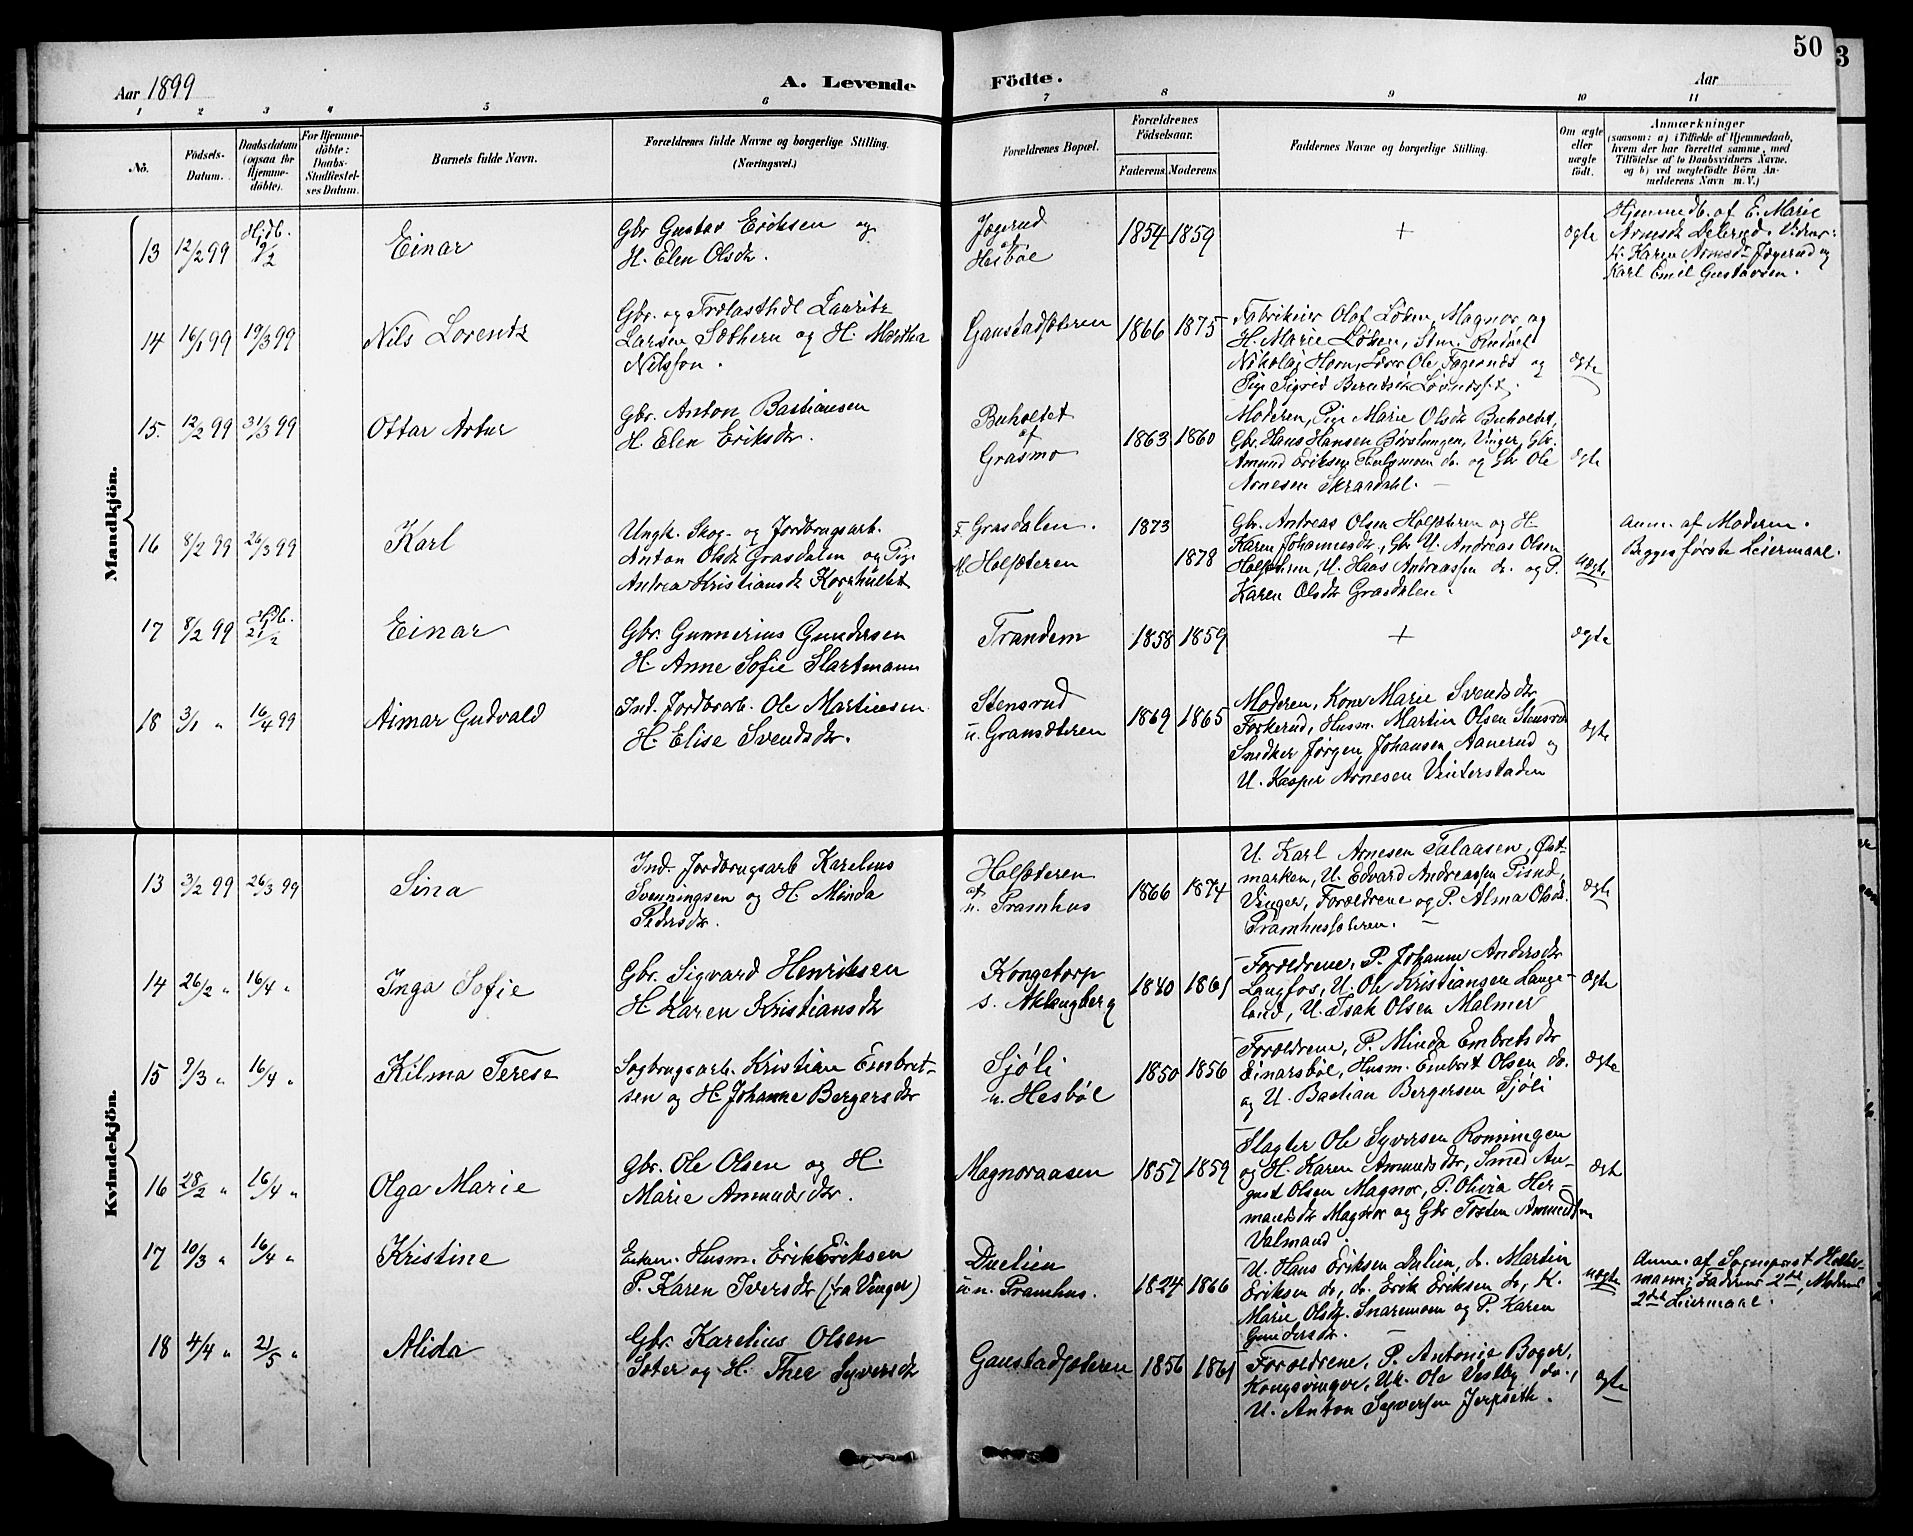 50
3
Aar 1899
A. Levende
Födte.
Aar
1 2 3 4 5 6 7 8 9 10 11
No.
Födsels-
Datum.
Daabsdatum
(ogsaa for
Hjemme-
döbte).
For Hjemme-
döbte:
Daabs-
Stadfæstel-
ses Datum.
Barnets fulde Navn.
Forældrenes fulde Navne og borgerlige Stilling.
(Næringsvei.)
Forældrenes Bopæl.
Forældrenes
Födselsaar.
Faderens. Moderens.
Faddernes Navne og borgerlige Stilling.
Om ægte
eller
uægte
födt.
Anmærkninger
(saasom: a) i Tilfælde af Hjemmedaab,
hvem der har forrettet samme, med
Tilföielse af to Daabsvidners Navne.
og b) ved uægtefödte Börn An-
melderens Navn m. V.)
Mandkjön.
13 12/2 99 Hjdb. 9/2
Einar
Gbr Gustav Eriksen og
H. Elen Olsdr.
Jægerud
af
Hesböl
1854 1859
+
ægte
Hjemmedb. af E. Marie
Arnesdr Vidner:
K. Karen Arnesdr Jægerud og
Karl Emil Gustavsen.
14 16/1 99 19/3 99
Nils Lorentz
Gbr. og Trælasthdl Lauritz
Larsen Sothern og H. Martha
Nilsson.
Gaustadsæteren
1866 1875
Fabrikeier Olaf Löken, Magnor og
H. Marie Löken, Stm.
Nikolaj Horn, Lærer Ole Fagernæs og
Pige Sigrid Berntsdr
ægte
15. 12/2 99 31/3 99
Ottar Artur
Gbr. Anton Bastiansen
H. Elen Eriksdr.
Buholtet
af
Grasmo
1863 1860
Moderen, Pige Marie Olsdr Buholtet,
Gbr. Hans Hansen Vinger, Gbr.
Amund Eriksen do. og Gbr Ole
Arnesen Skraadahl.
ægte
16 8/2 99 26/3 99
Karl
Ungk. Skog- og Jordbrugsarb.
Anton Olsen Grasdalen og Pige
Andrea Kristiansdr Korshultet
F. Grasdalen.
M. Holsæteren
1873
1878
Gbr. Andreas Olsen Holsæteren og H.
Karen Johannesdr, Gbr U. Andreas Olsen
Holsæteren, U. Hans Andreassen do. og P.
Karen Olsdr Grasdalen.
uægte
Anm. af Moderen.
Begges første Leiermaal.
17 8/2 99 Hjdb. 21/2
Einar
Gbr. Gunnerius Gundersen
H. Anne Sofie Slartmann
Trandem
1858 1859
+
ægte
18 3/1 " 16/4 99
Aimar Gudvald
Ind. Jordbrarb. Ole Martinsen
H. Elise Svendsdr.
Stensrud
u. Gransæteren
1869 1865
Moderen, Kone Marie Svendsdr
Forkerud, Husm. Martin Olsen Stensrud
Snedker Jørgen Johansen Aanerud og
U. Kasper Arnesen Vinterstaden
ægte
Kvindekjön.
13 3/2 99 26/3 99
Sina
Ind. Jordbrugsarb Karelius
Svenningsen og H. Minda
Pedersdr.
Holsæteren
af
n. Pramhus
1866 1874
U. Karl Arnesen Øst-
marken, U. Edvard Andreassen
Vinger, Forældrene og P. Alma Olsdr
Pramhussæteren.
ægte
14 26/2 " 16/4 "
Inga Sofie
Gbr. Sigvard Henriksen
H. Karen Kristiansdr
Kongetorp
s. Aklangberg
1840 1861
Forældrene, P. Johanne Andersdr
Langfos, U. Ole Kristiansen Lange-
land, U. Isak Olsen Malmer
ægte
15 9/3 " 16/4 "
Kilma Terese
Sagbrugsarb. Kristian Embret-
sen og H. Johanne Bergersdr
Sjöli
u. Hesböl
1850 1856
Forældrene, P. Minda Embretsdr
Einarsböl, Husm. Embret Olsen do.
og U. Bastian Bergersen Sjöli
ægte
16 28/2 " 16/4 "
Olga Marie
Gbr. Ole Olsen og H.
Marie Amundsdr.
Magnoraasen
1857 1859
Slagter Ole Syversen Rønningen
og H. Karen Amundsdr, Smed Au-
gust Olsen Magnor, P. Olivia Her-
mansdr Magnor og Gbr Tosten Amundsen
Valmand.
ægte
17 10/3 " 16/4 "
Kristine
Enkem. Husm. Erik Eriksen
P. Karen Iversdr (fra Vinger)
Duelien
u. n. Pramhus.
1824 1866
U. Hans Eriksen Dulien, do. Martin
Eriksen do, do. Erik Eriksen do, K.
Marie Olsdr. Snaremoen og P. Karen
Gundersdr.
uægte
Anm. af Sognepræst Holter-
mann; Faderens 2det, Moderens
2det Leiermaal.
18 4/4 " 21/5 "
Alida
Gbr. Karelius Olsen
Sæter og H. Thee Syversdr
Gaustadsæteren
1856 1861
Forældrene, P. Antonie Boger,
Kongsvinger, Uk. Ole Vestby do.,
U. Anton Syversen Jerpseth.
ægte